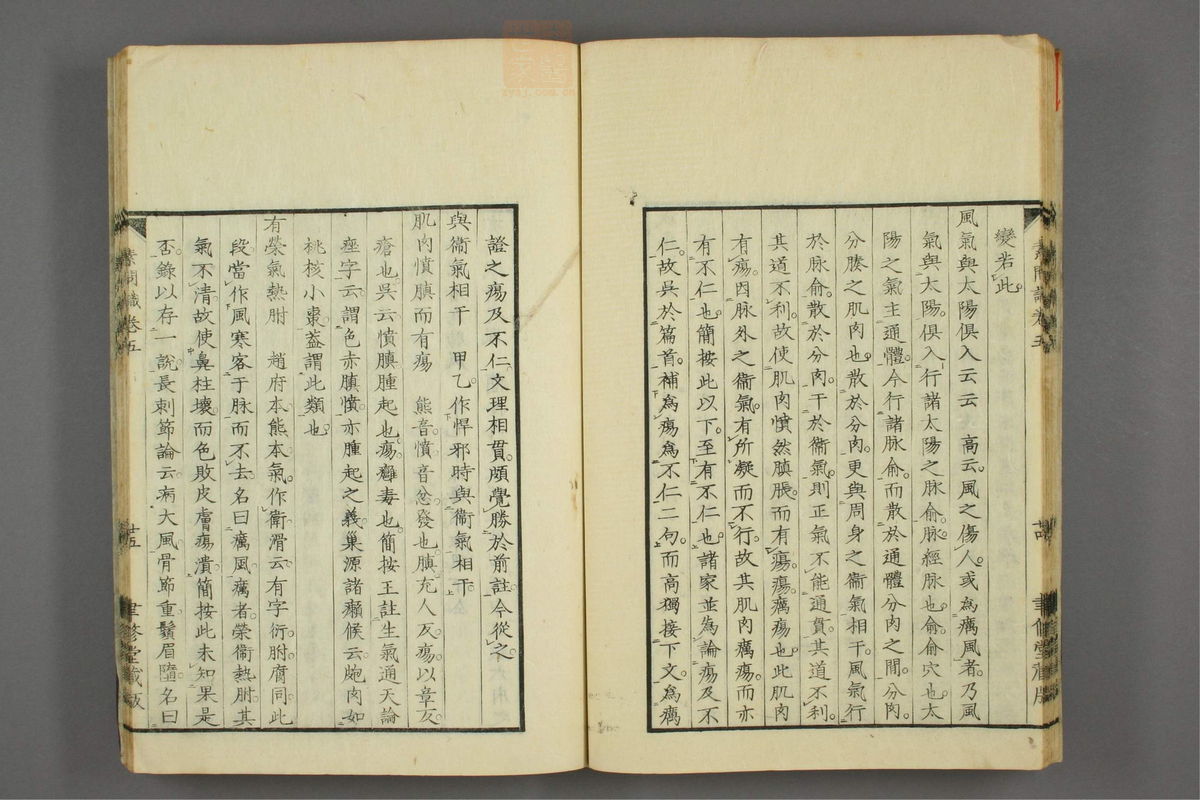 變若此
風氣與太陽俱入云云 高云風之傷人或為癘風者乃風
氣與太陽俱入行諸太陽之脉俞脉經脉也俞俞穴也太
陽之氣主通體今行諸脉俞而散於通體分肉之間分肉
分腠之肌肉也散於分肉更與周身之衞氣相干風氣行
於脉俞散於分肉干於衞氣則正氣不能通貫其道不利
其道不利故使肌肉憤然䐜脹而有瘍瘍癘瘍也此肌肉
有瘍因脉外之衞氣有所凝而不行故其肌肉癘瘍而亦
有不仁也簡按此以下至有不仁也諸家並為論瘍及不
仁故吳於篇首補為瘍為不仁二句而高獨接下文為癘
證之瘍及不仁文理相貫頗覺勝於前註今從之
與衞氣相干 甲乙作悍邪時與衞氣相干
肌肉憤䐜而有瘍 熊音憤音忿發也䐜充人反瘍以章反
瘡也吳云憤䐜腫起也瘍癰毒也簡按王註生氣通天論
痤字云謂色赤䐜憤亦腫起之義巢源諸癩候云皰肉如
桃核小棗葢謂此類也
有榮氣熱胕 趙府本熊本氣作衛滑云有字衍胕腐同此
段當作風寒客于脉而不去名曰癘風癘者榮衞熱胕其
氣不清故使鼻柱壞而色敗皮膚瘍潰簡按此未知果是
否錄以存一說長刺節論云病大風骨節重鬚眉墮名曰
素問識卷五
廿五
聿修堂藏版